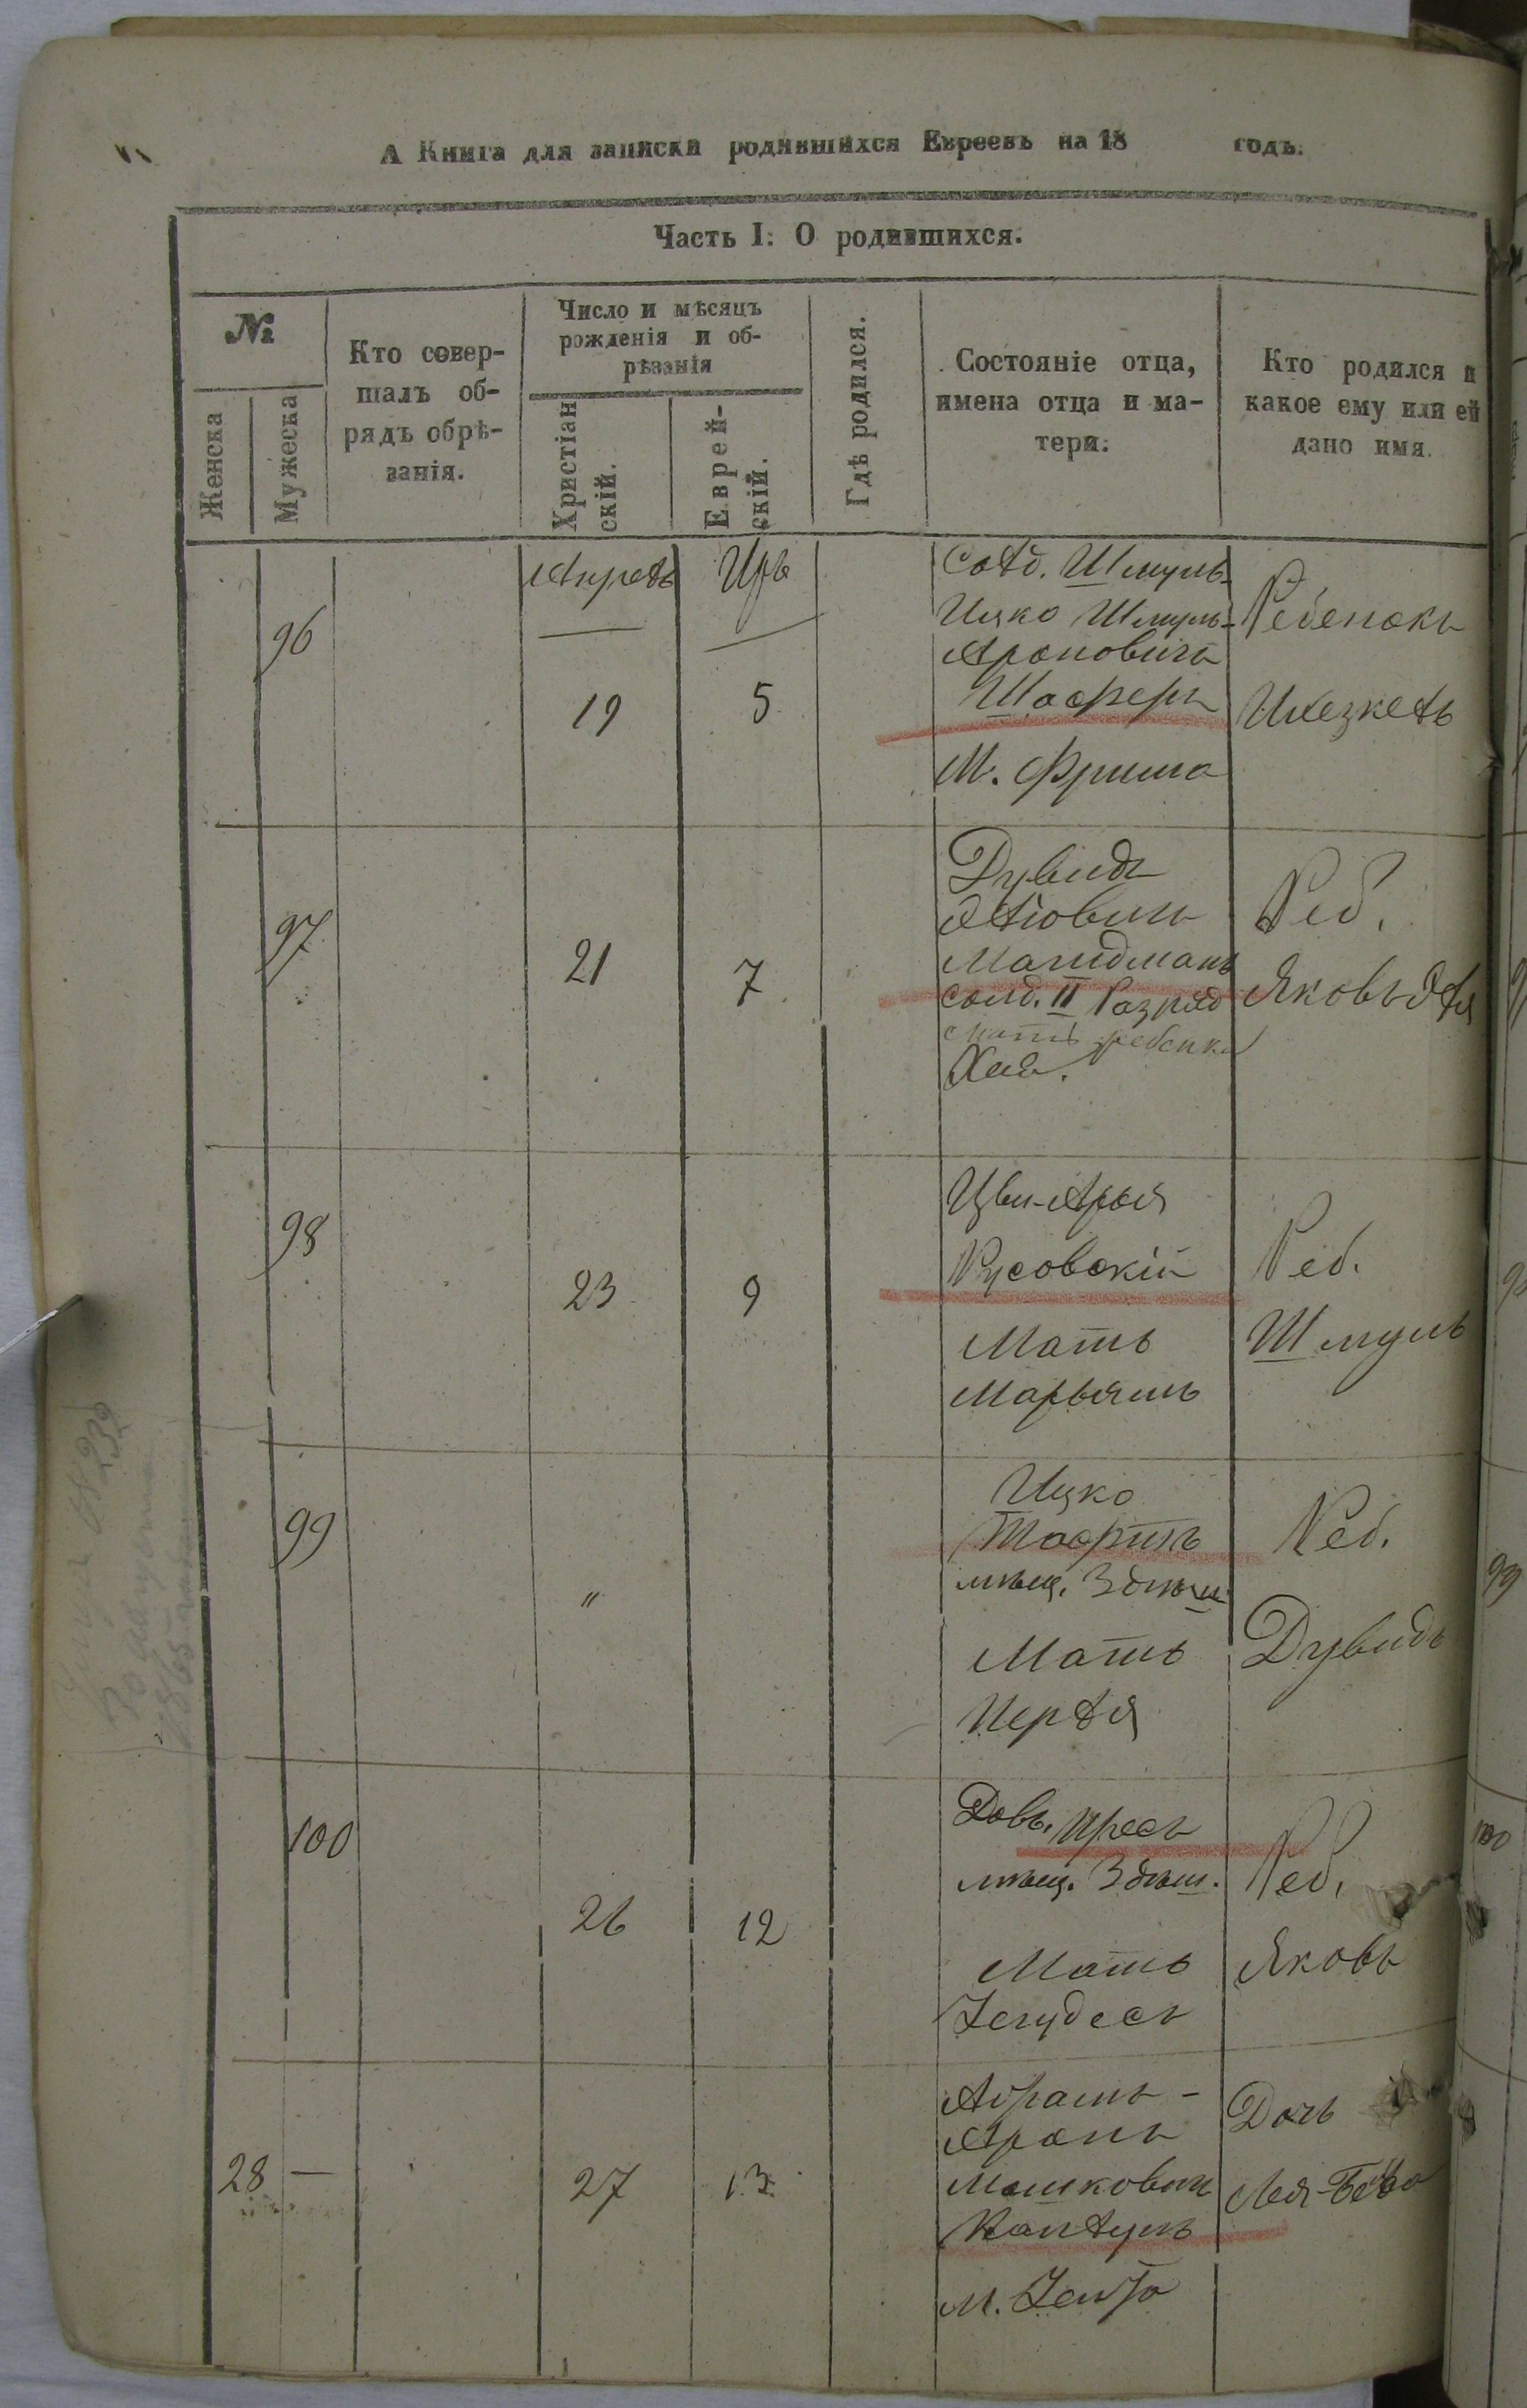 А Книга для записки родившихся Евреевъ на 18 годъ.
Часть I: О родившихся.
№
Женска
Мужеска
Кто совер-
шалъ об-
рядъ обрѣ-
занія.
Число и мѣсяцъ
рожденія и об-
рѣзанія
Христіан
скій.
Еврей-
скій.
Гдѣ родился.
Состояніе отца,
имена отца и ма-
тери.
Кто родился и
какое ему или ей
дано имя.
96
Апрель
19
Иръ
5
Солд. Шмуль-
Ицко Шмуль-
Ароновичъ
Шаферъ
М. Фрима
Ребенокъ
Ихезкель
97
21
7
Дувидъ
солд. II Разряд
мать ребенка
Хая.
Реб.
Яковъ
98
23
9
Цви-Арья
Русовскій
Мать
Марьямъ
Реб.
Шмуль
99
"
Ицко
мѣщ. Здѣш
Мать
Перля
Реб.
Дувидъ
100
26
12
Довъ. Пресъ
мѣщ. Здѣш.
Мать
Іегудесъ
Реб.
Яковъ
28 —
27
13
Абрамъ-
Аронъ
Мошковичъ
Каплунъ
М. Іента
Дочь
Лея-Бейла